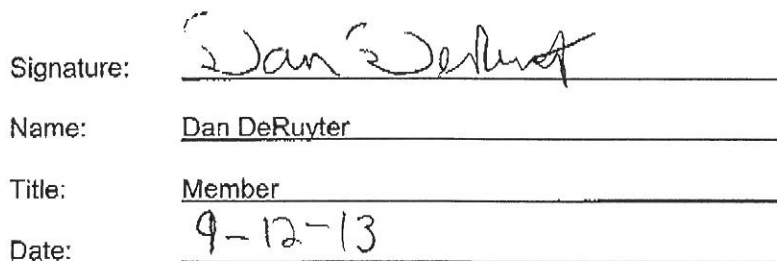 Signature: Dan DeRuyter
Name: Dan DeRuyter
Title: Member
Date: 9-12-13